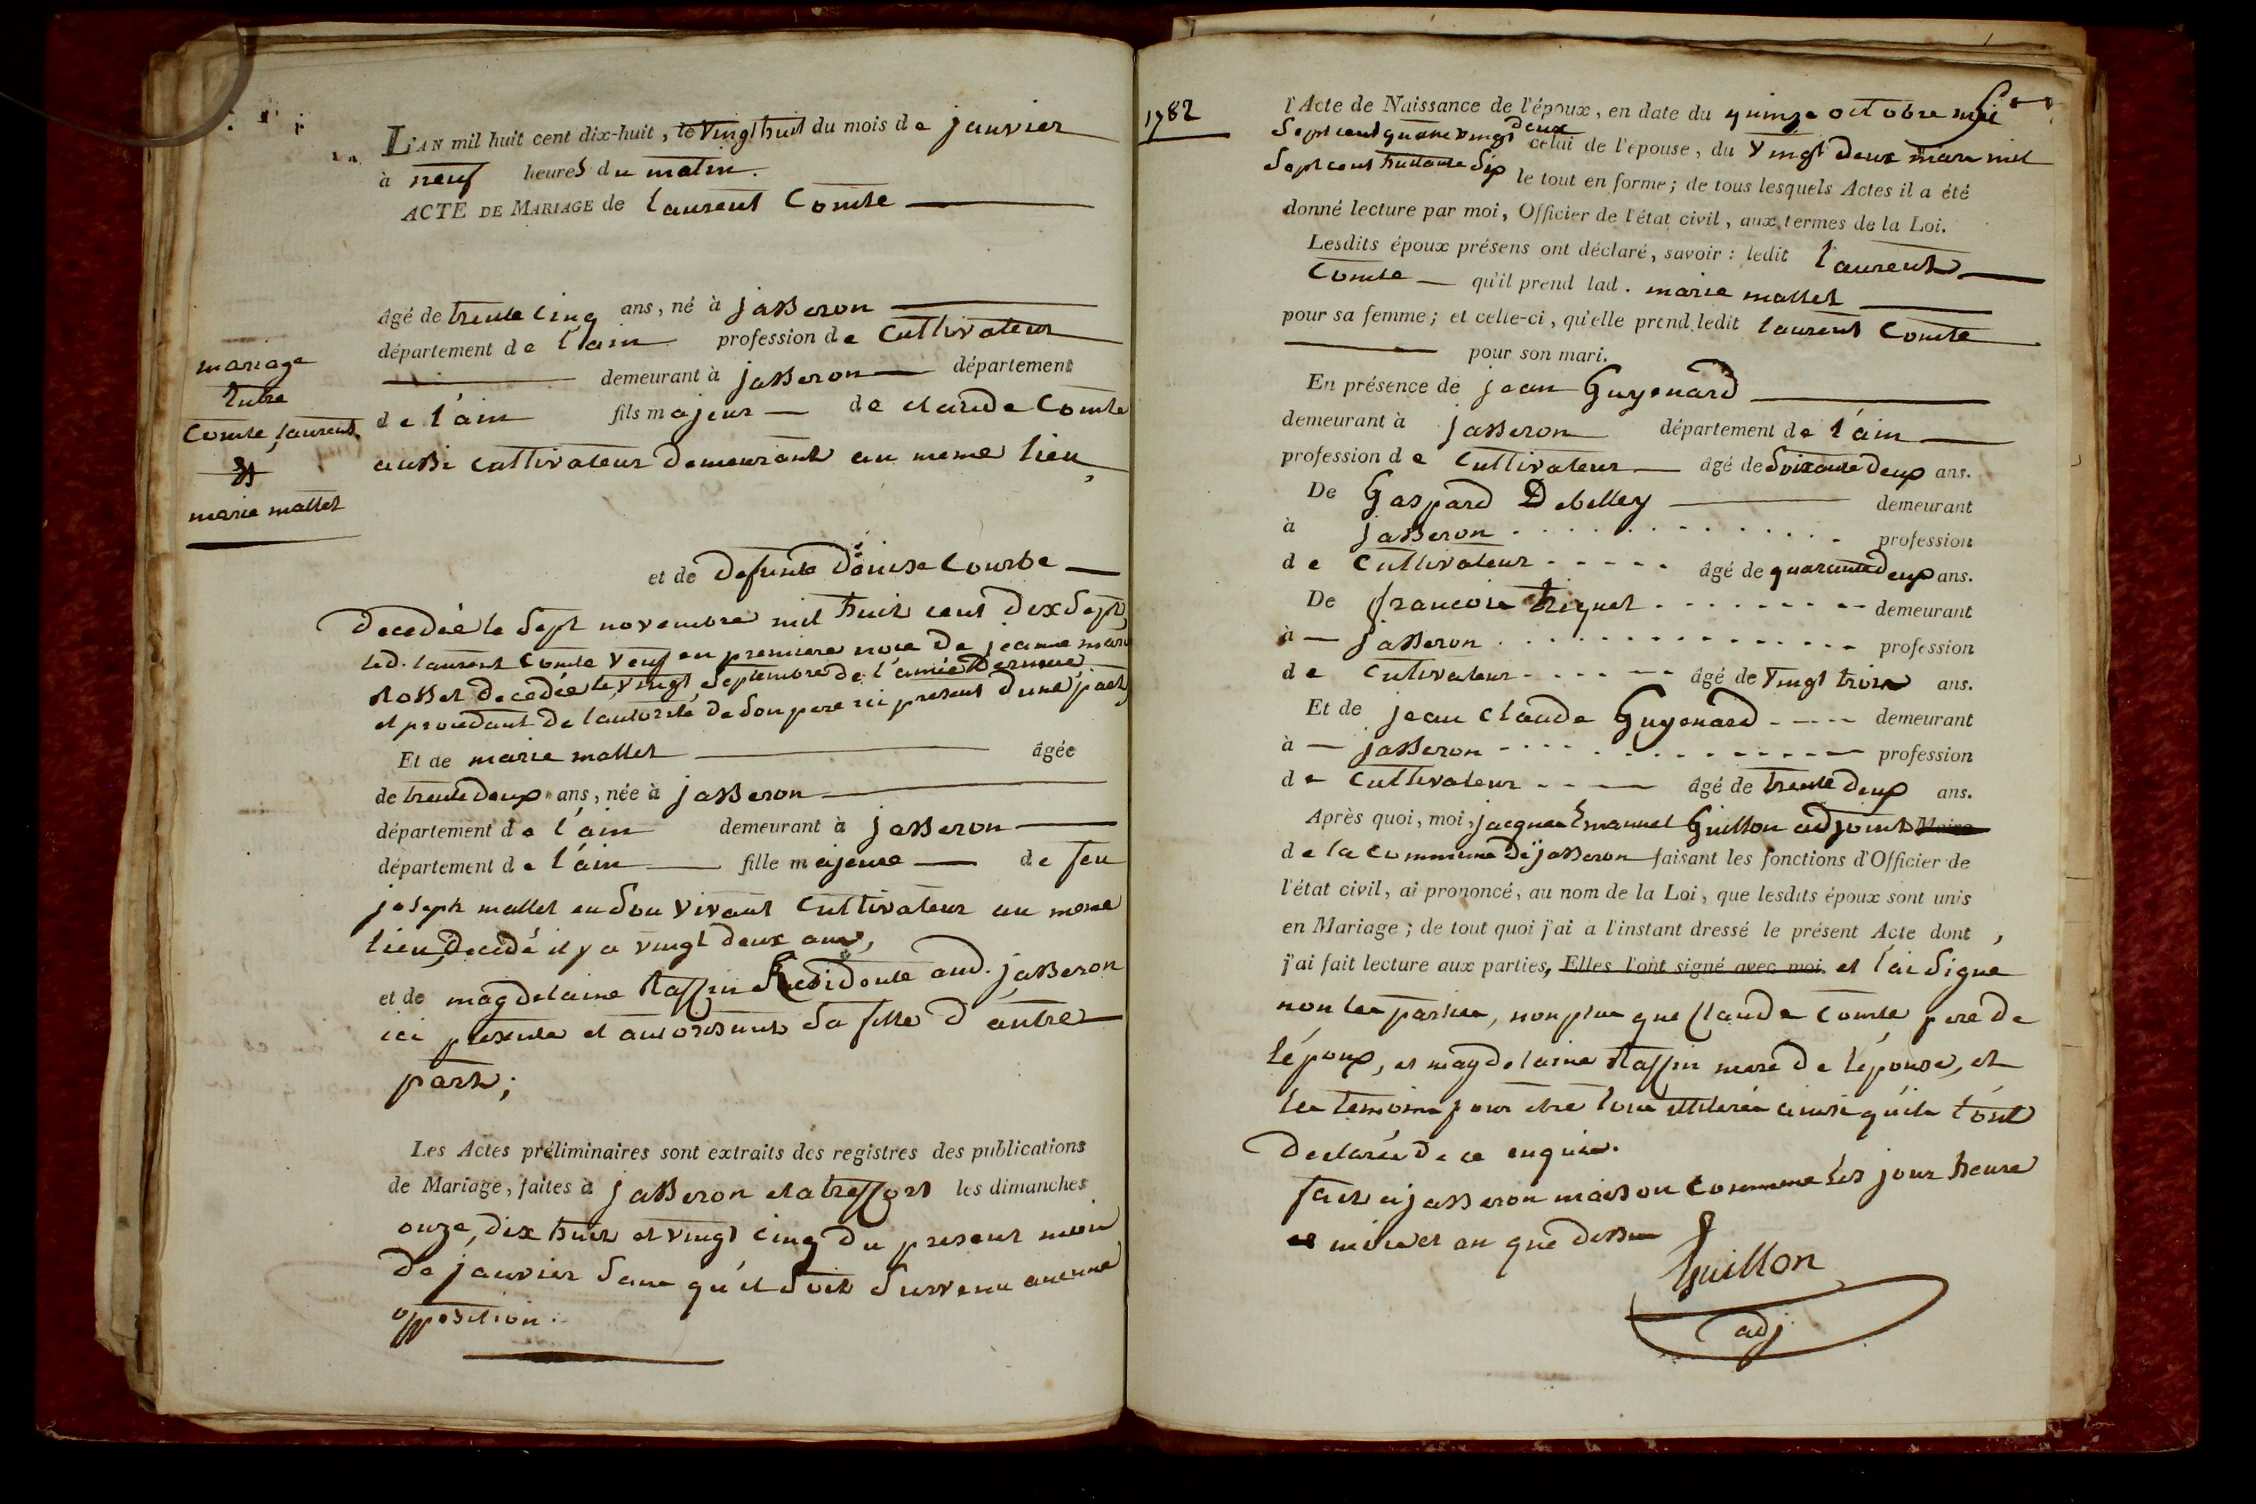 L'AN mil huit cent dix-huit, le vingt huit du mois de janvier
à neuf heures du matin.
ACTE DE MARIAGE de laurent Comte
âgé de trente cinq ans, né à jasseron
département de l'ain profession de Cultivateur
demeurant à jasseron département
de l'ain fils majeur de claude Comte
aussi cultivateur demeurant au meme lieu,
et de defunte Dénise Courbe
decedée le sept novembre mil huit cent dix sept,
led. laurent Comte veuf en premiere noce de jeanne marie
Rosset decedée le vingt septembre de l'année derniere
et procedant de l'autorité de son pere ici present d'une part,
Et de marie mallet âgée
de trente deux ans, née à jasseron
département de l'ain demeurant à jasseron
département de l'ain fille majeure de feu
joseph mallet en son vivant Cultivateur au meme
lieu, decedé il y a vingt deux ans,
et de magdelaine Raffin Residente aud. jasseron
ici presente et autorisant sa fille d'autre
part;
Les Actes préliminaires sont extraits des registres des publications
de Mariage, faites à jasseron et a treffort les dimanches
onze, dix huit et vingt cinq du present mois
de janvier sans qu'il soit survenu aucune
opposition.
mariage
Entre
Comte, laurent.
Et
marie mallet
1782
l'Acte de Naissance de l'époux, en date du quinze octobre mil
sept cent quatre vingt deux celui de l'épouse, du vingt deux mars mil
sept cent huitante six le tout en forme; de tous lesquels Actes il a été
donné lecture par moi, Officier de l'état civil, aux termes de la Loi.
Lesdits époux présens ont déclaré, savoir: ledit laurent
Comte qu'il prend lad. marie mallet
pour sa femme; et celle-ci, qu'elle prend ledit laurent Comte
pour son mari.
En présence de jean Guyenard
demeurant à jasseron département de l'ain
profession de Cultivateur âgé de soixante deux ans.
De Gaspard Debelley demeurant
à jasseron profession
de Cultivateur âgé de quarante deux ans.
De francois triquet demeurant
à jasseron profession
de Cultivateur âgé de vingt trois ans.
Et de jean claude Guyenard demeurant
à jasseron profession
de Cultivateur âgé de trente deux ans.
Après quoi, moi, jacques Emanuel Guillon adjoint Maire
de la Commune de jasseron faisant les fonctions d'Officier de
l'état civil, ai prononcé, au nom de la Loi, que lesdits époux sont unis
en Mariage; de tout quoi j'ai a l'instant dressé le présent Acte dont,
j'ai fait lecture aux parties, Elles l'ont signé avec moi et l'ai signé
non les parties, non plus que Claude Comte pere de
l'époux, et magdelaine Raffin mere de l'épouse, et
les temoins pour etre tous illiterés ainsi qu'ils l'ont
declarés de ce enquis.
fait a jasseron maison Commune les jour heure
mois et an que dessus
Guillon
adj